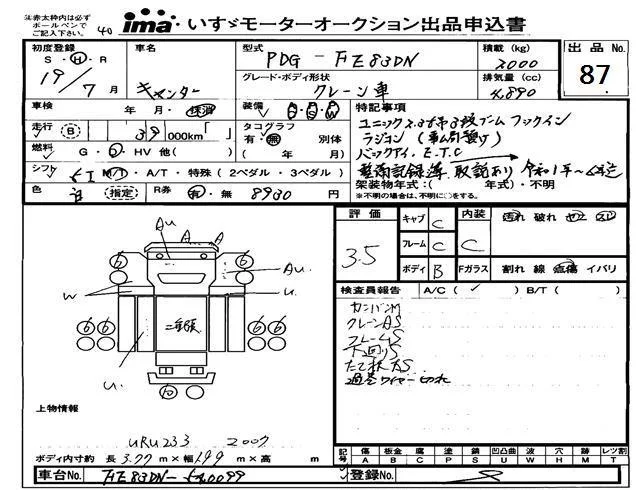 ※赤太枠内は必ず
ボールペンで
ご記入下さい。
40
ima いすゞモーターオークション出品申込書
初度登録 S・H・R
19/7月
車名
キャンター
型式
PDG-FE83DN
積載(kg)
2000
出品No.
87
グレード・ボディ形状
クレーン車
排気量(cc)
4890
車検
年・月・抹消
装備
特記事項
ユニック
段ブーム フックイン
ラジコン
バックアイ、E.T.C
整備記録簿 取説あり 令和1年~6年迄
走行
B
39,000km「 」
タコグラフ
有・無 別体
( 年 月)
燃料
G・D・HV 他( )
シフト
M/T・A/T・特殊(2ペダル・3ペダル)
架装物年式:( 年式)・不明
※不明の場合は、不明に○をする。
色
白
(指定)
R券
有・無 8930円
評価
3.5
キャブ C
フレーム C
ボディ B
内装 C
Fガラス
汚れ 破れ
割れ 線 点傷 イバリ
検査員報告
A/C( ✓ ) B/T( )
クレーンAS
フレームS
下回りS
過巻ワイヤー切れ
Au
A
A
Au
W
u.
u.
6 6 6 6 6 6
二重張
10
上物情報
URU233 2007
ボディ内寸約 長 3.77 m×幅 1.99 m×高 m
記号
傷 A
板金 B
腐 C
塗 P
錆 S
凹凸曲 U
波 W
穴 H
跡 M
レツ割 T
車台No.
FE83DN-
登録No.